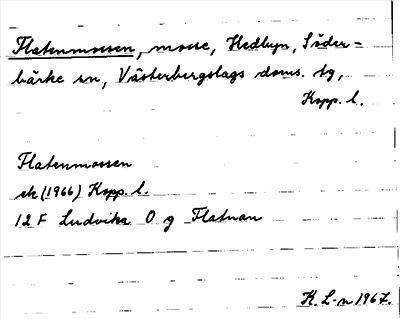 Flatenmossen, mosse, Hedbyn, Söder=
bärke sn, Västerbergslags doms. tg,
Kopp. l.
Flatenmossen
ek (1966) Kopp. l.
12 F Ludvika O g Flatnan
K. L-n 1967.